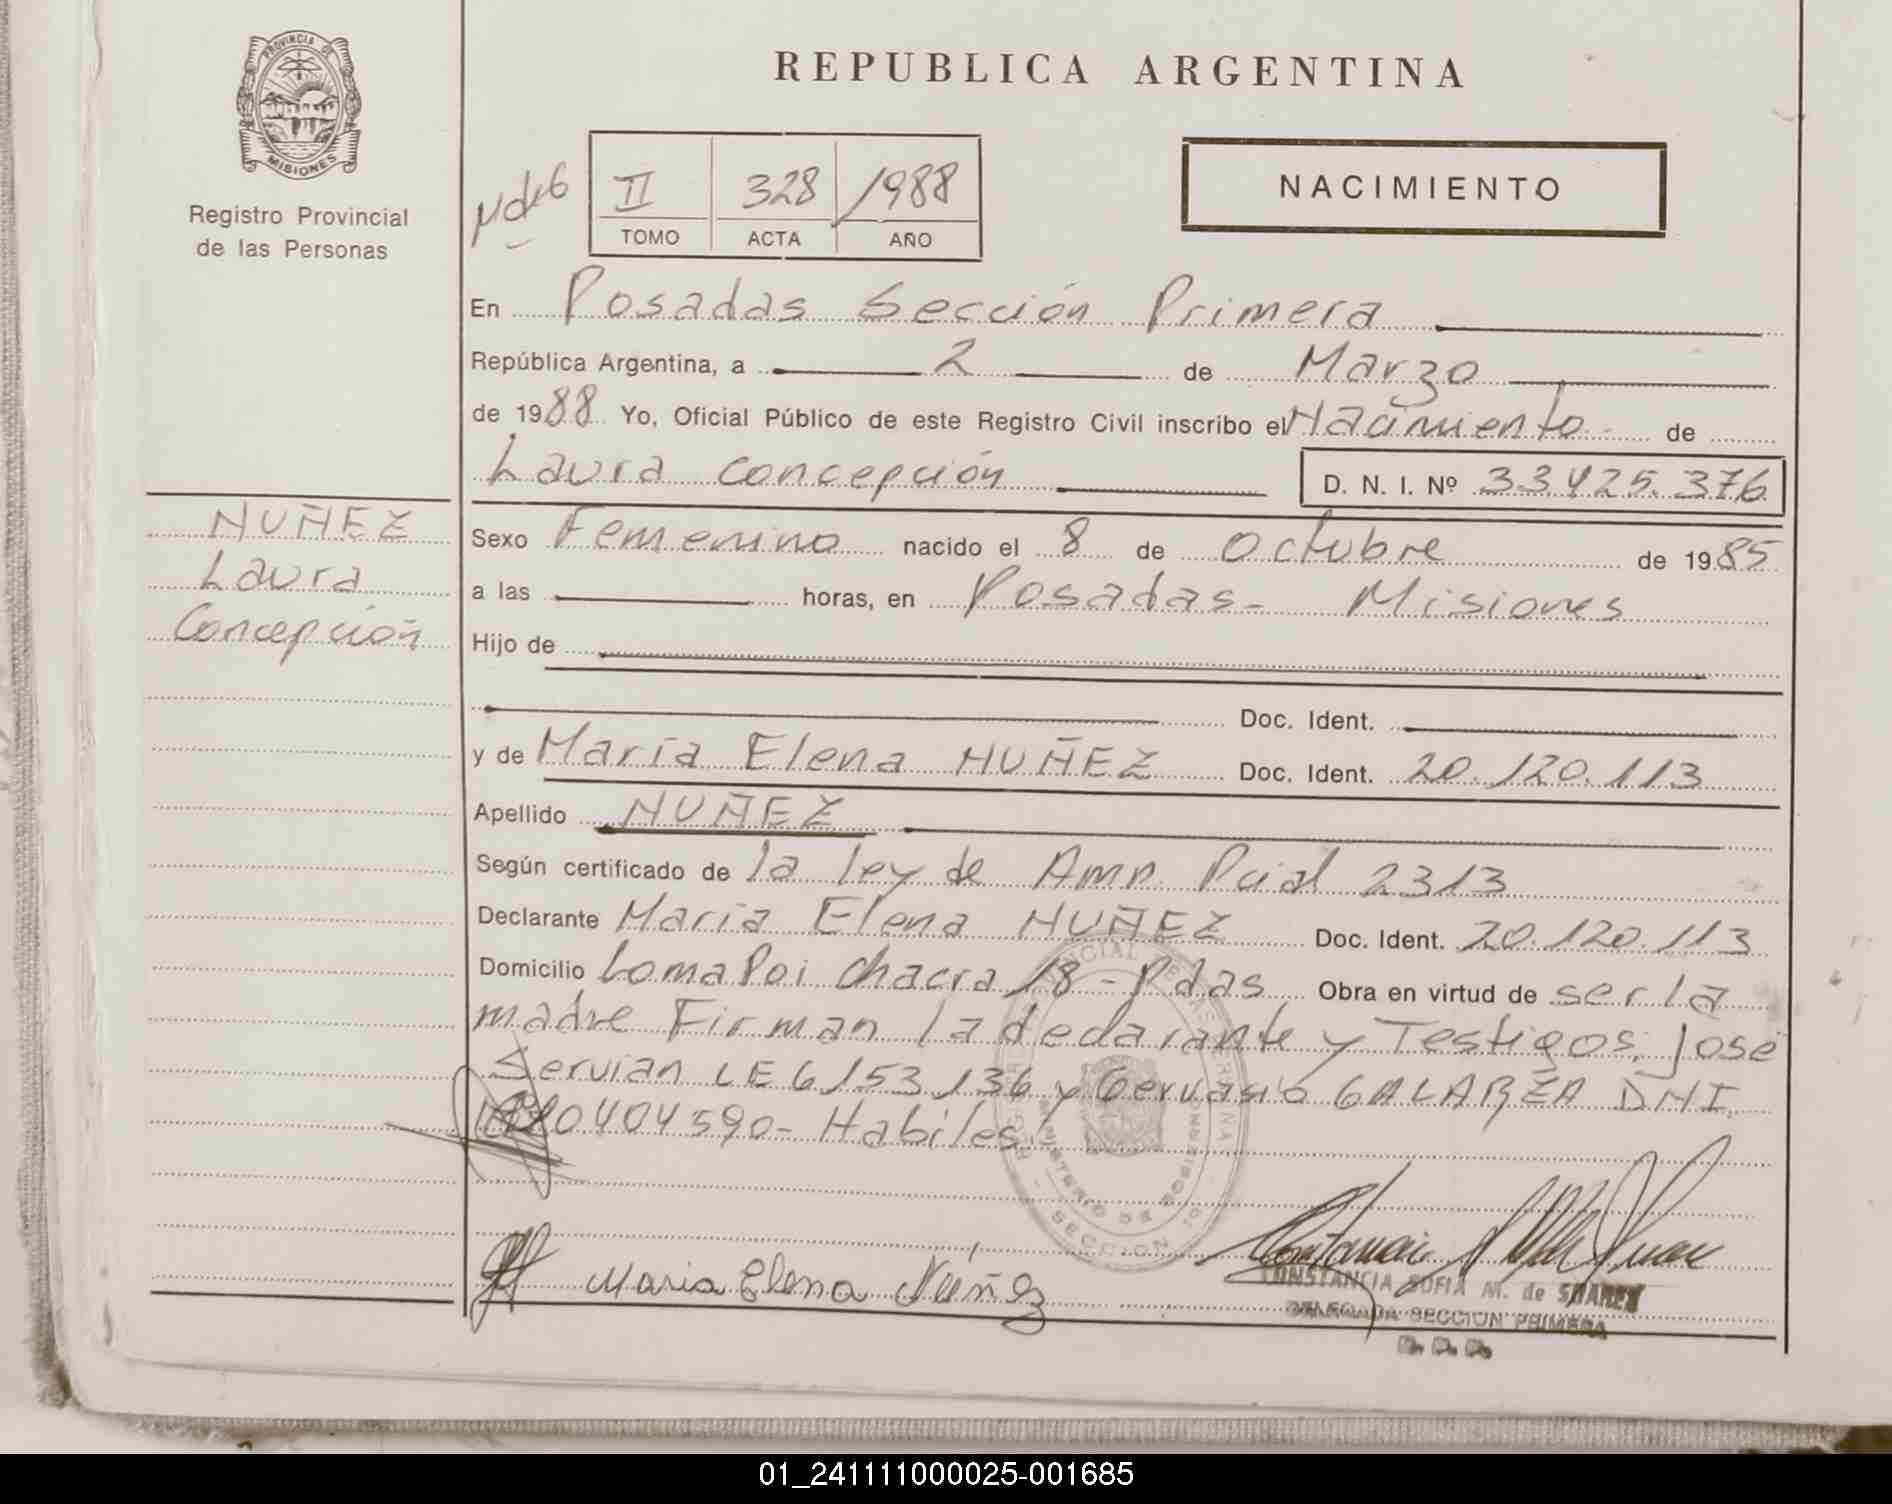 PROVINCIA DE
MISIONES
Registro Provincial
de las Personas
REPUBLICA ARGENTINA
II 328 1988
TOMO ACTA AÑO
NACIMIENTO
En Posadas Sección Primera
República Argentina, a 2 de Marzo
de 1988 Yo, Oficial Público de este Registro Civil inscribo el Nacimiento de
Laura Concepción D. N. I. Nº 33.425.376
NUÑEZ
Laura
Concepción
Sexo Femenino nacido el 8 de Octubre de 1985
a las horas, en Posadas - Misiones
Hijo de
Doc. Ident.
y de María Elena NUÑEZ Doc. Ident. 20.120.113
Apellido NUÑEZ
Según certificado de la ley de Amn. Pcial 2313
Declarante María Elena NUÑEZ Doc. Ident. 20.120.113
Domicilio Loma Poi Chacra 18 - Pdas Obra en virtud de ser la
madre Firman la declarante y Testigos: José
Servian LE 6153136 y Gervasio GALARZA DNI
10404590 - Habiles
María Elena Núñez
CONSTANCIA SOFIA M. de SUAREZ
DELEGADA SECCION PRIMERA
R. P. P.
01_241111000025-001685